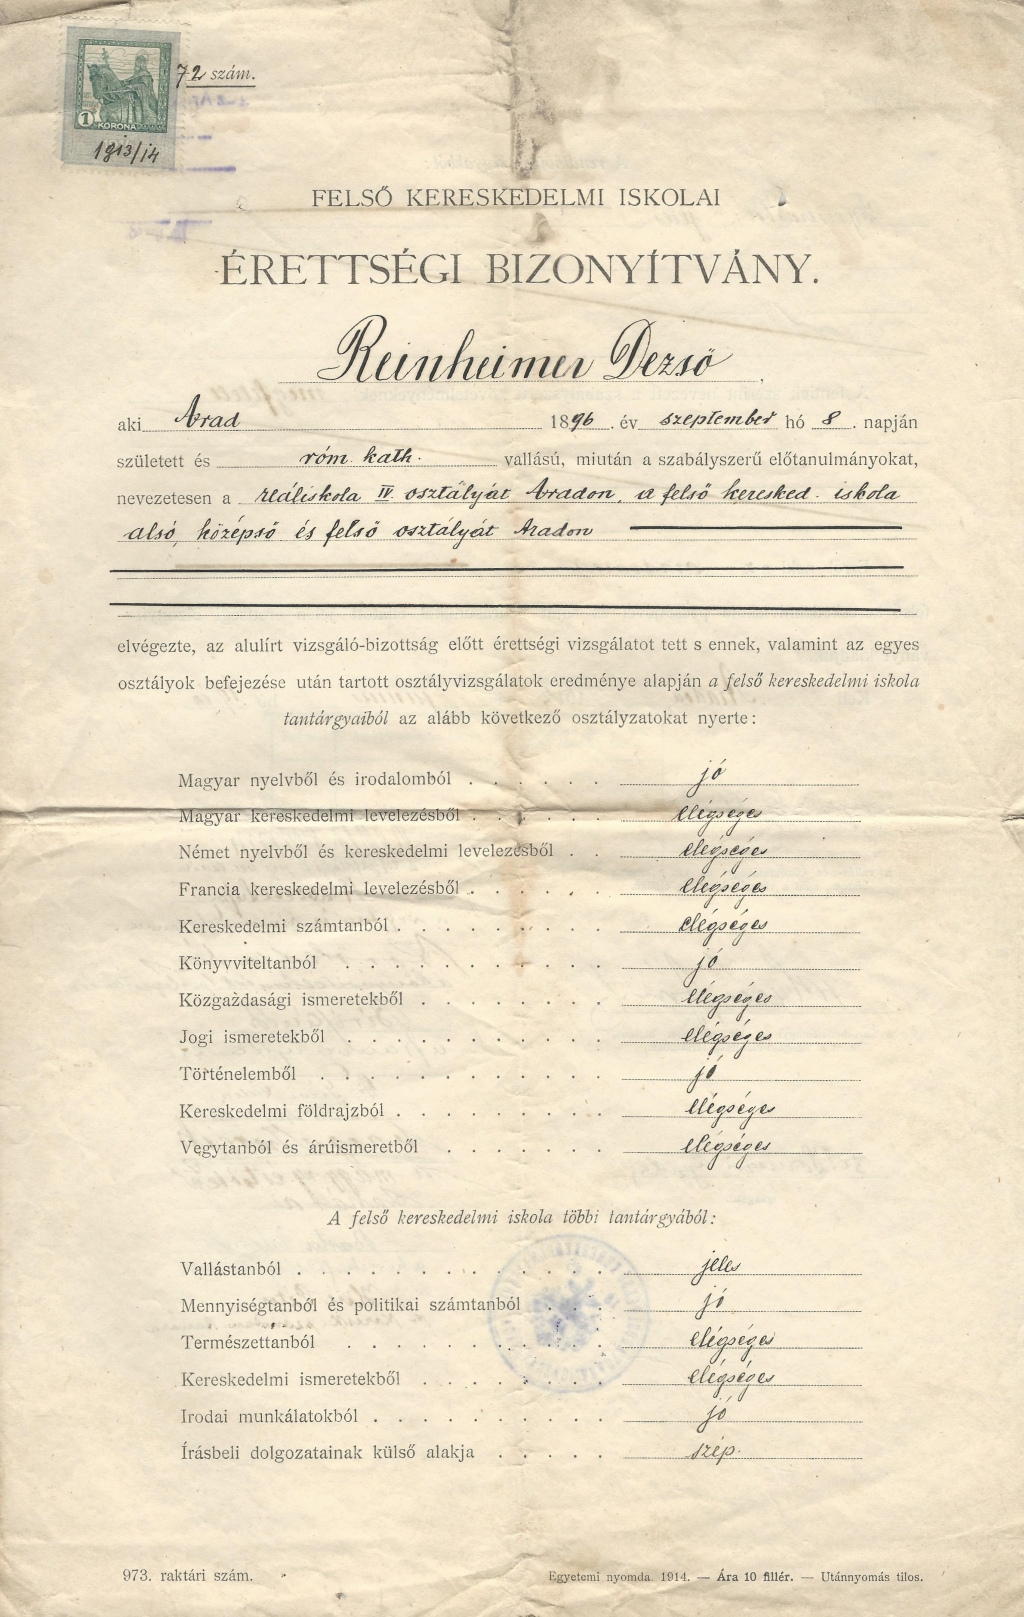 72 szám.
1 KORONA
1913/14
FELSŐ KERESKEDELMI ISKOLAI
ÉRETTSÉGI BIZONYÍTVÁNY.
Reinheimer Dezső
aki Arad 1896. év szeptember hó 8. napján
született és róm. kath. vallású, miután a szabályszerű előtanulmányokat,
nevezetesen a reáliskola IV. osztályát Aradon, a felső keresked. iskola
alsó, középső és felső osztályát Aradon
elvégezte, az alulírt vizsgáló-bizottság előtt érettségi vizsgálatot tett s ennek, valamint az egyes
osztályok befejezése után tartott osztályvizsgálatok eredménye alapján a felső kereskedelmi iskola
tantárgyaiból az alább következő osztályzatokat nyerte:
Magyar nyelvből és irodalomból . . . . . . jó
Magyar kereskedelmi levelezésből . . . . . . elégséges
Német nyelvből és kereskedelmi levelezésből . . elégséges
Francia kereskedelmi levelezésből . . . . . . elégséges
Kereskedelmi számtanból . . . . . . . . . elégséges
Könyvviteltanból . . . . . . . . . . . jó
Közgazdasági ismeretekből . . . . . . . . elégséges
Jogi ismeretekből . . . . . . . . . . . elégséges
Történelemből . . . . . . . . . . . . jó
Kereskedelmi földrajzból . . . . . . . . . elégséges
Vegytanból és árúismeretből . . . . . . . elégséges
A felső kereskedelmi iskola többi tantárgyából:
Vallástanból . . . . . . . . . . . . . jeles
Mennyiségtanból és politikai számtanból . . . jó
Természettanból . . . . . . . . . . . elégséges
Kereskedelmi ismeretekből . . . . . . . . elégséges
Irodai munkálatokból . . . . . . . . . . jó
Írásbeli dolgozatainak külső alakja . . . . . szép.
973. raktári szám.
Egyetemi nyomda. 1914. — Ára 10 fillér. — Utánnyomás tilos.